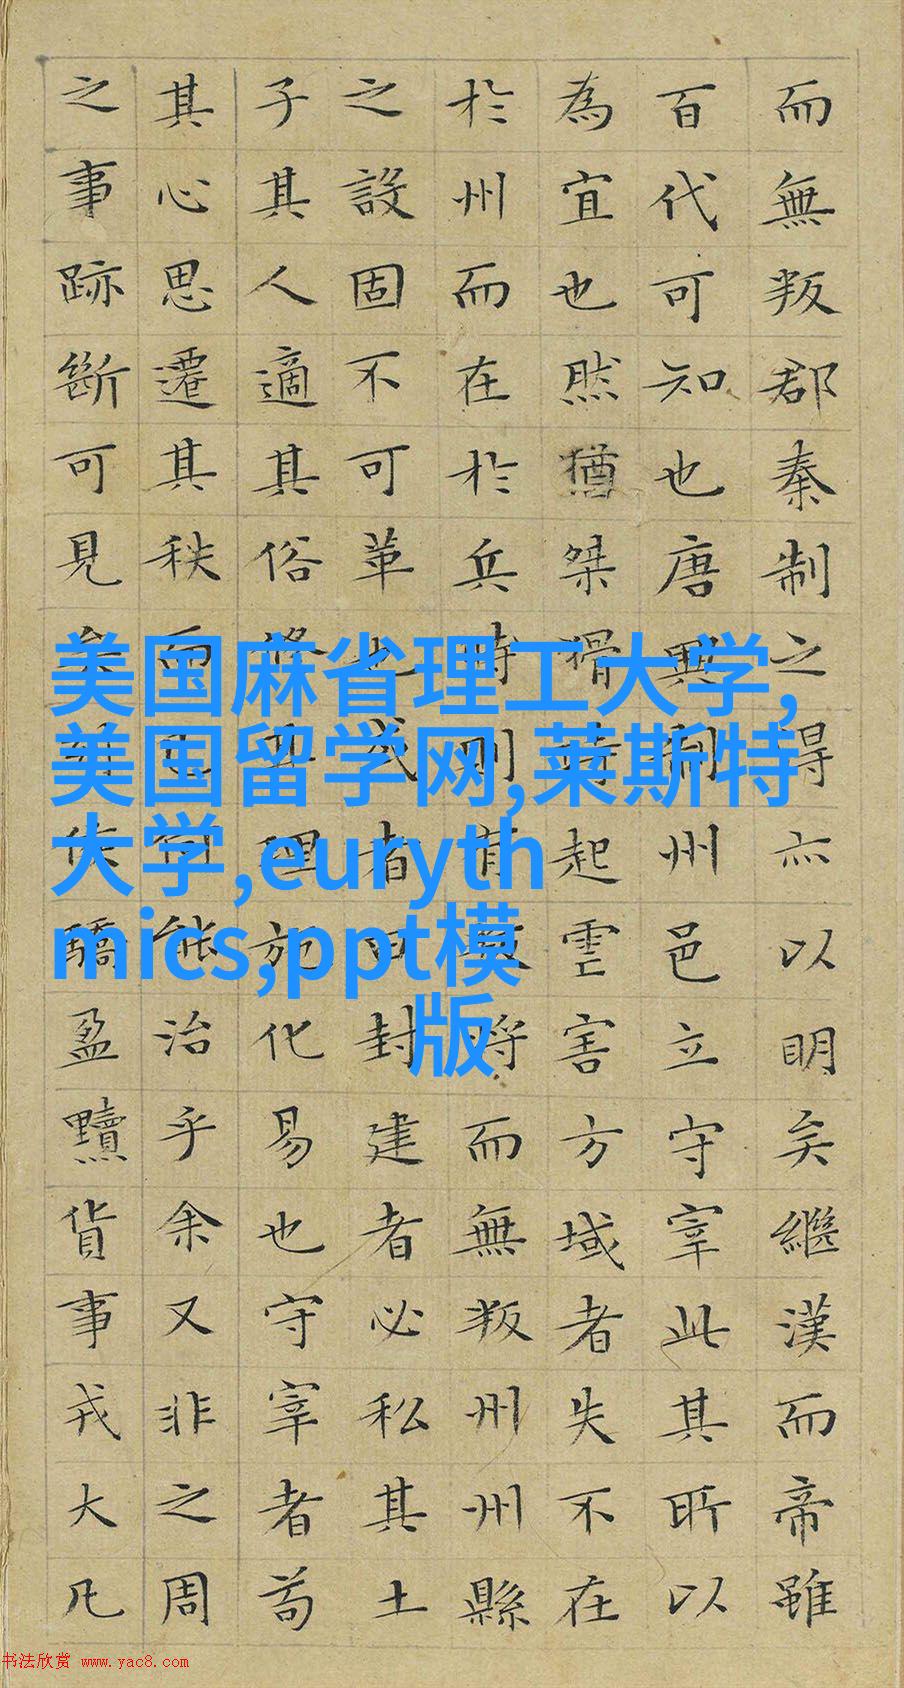 而無叛郡秦制之得亦以明矣繼漢而帝雖
百代可知也唐興制州邑立守宰此其所以
為宜也然猶桀猾時起虐害方域者失不在
於州而在於兵時則有叛將而無叛州州縣
之設固不可革也或者曰封建者必私其土
子其人適其俗修其理施化易也守宰者苟
其心思遷其秩而已何能治乎余又非之周
之事跡斷可見矣列侯驕盈黷貨事戎大凡
美国麻省理工大学,
美国留学网,莱斯特
大学,euryth
mics,ppt模
版
书法欣赏 www.yac8.com